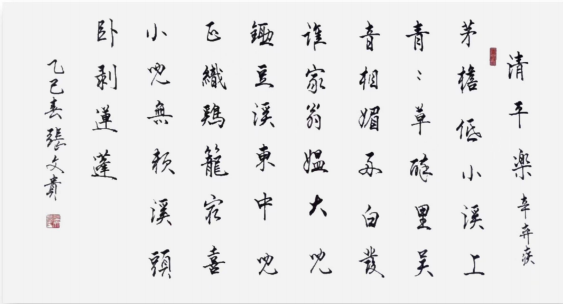 清平樂 辛弃疾
茅檐低小溪上
青〻草醉里吴
音相媚好白發
誰家翁媪大兒
鋤豆溪東中兒
正織鷄籠最喜
小兒無賴溪頭
卧剥蓮蓬
乙巳春張文貴